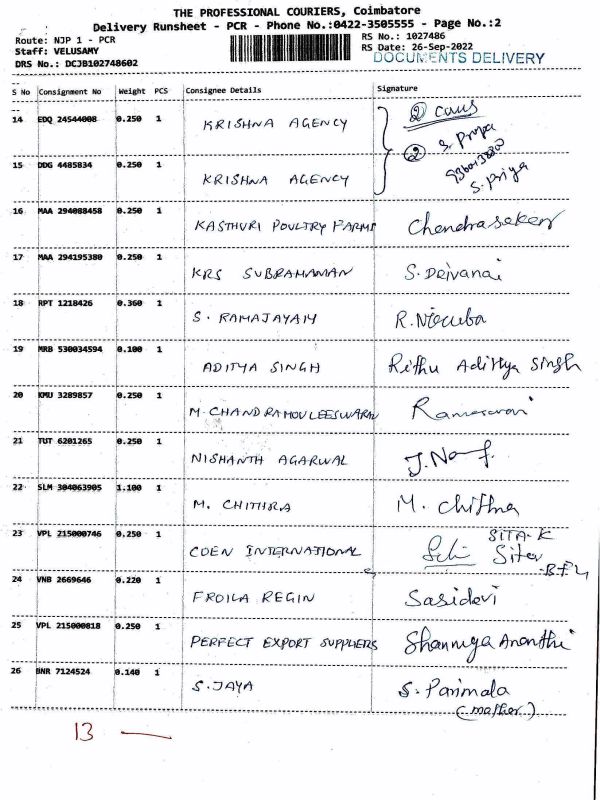 THE PROFESSIONAL COURIERS, Coimbatore
Delivery Runsheet - PCR - Phone No.:0422-3505555 - Page No.:2
Route: NJP 1 - PCR
RS No.: 1027486
Staff: VELUSAMY
RS Date: 26-Sep-2022
DRS No.: DCJB102748602
DOCUMENTS DELIVERY
S No Consignment No Weight PCS Consignee Details Signature
14 EDQ 24544008 0.250 1 KRISHNA AGENCY ② Caus
② S. Priya
15 DDG 4485834 0.250 1 KRISHNA AGENCY S. Priya
16 MAA 294088458 0.250 1 KASTHURI POULTRY FARMS Chendrasekar
17 MAA 294195380 0.250 1 KRS SUBRAMANIAN S. Deivanai
18 RPT 1218426 0.360 1 S. RAMAJAYAM R.
19 MRB 530034594 0.100 1 ADITYA SINGH Rithu Aditya Singh
20 KMU 3289857 0.250 1 M. CHANDRAMOULEESWARAN
21 TUT 6201265 0.250 1 NISHANTH AGARWAL
22 SLM 304063905 1.100 1 M. CHITHRA M. Chithra
23 VPL 215000746 0.250 1 COEN INTERNATIONAL SITA-K
24 VNB 2669646 0.220 1 FROILA REGIN Sasidevi
25 VPL 215000818 0.250 1 PERFECT EXPORT SUPPLIERS Shanmuga Ananthi
26 BNR 7124524 0.140 1 S. JAYA S. Parimala
(mother)
13 —